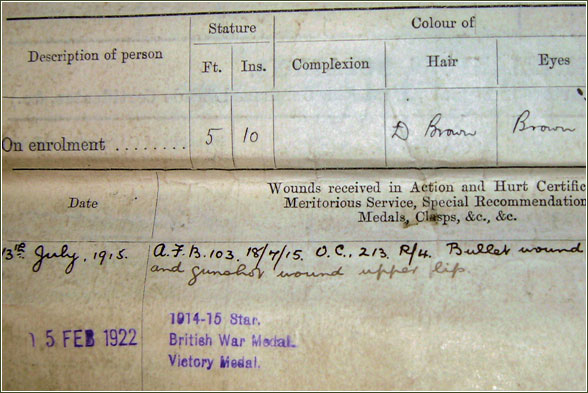 Description of person
Stature
Colour of
Ft.
Ins.
Complexion
Hair
Eyes
On enrolment ........
5
10
D Brown
Brown
Date
Wounds received in Action and Hurt Certific
Meritorious Service, Special Recommendation
Medals, Clasps, &c., &c.
13th July, 1915.
A.F.B. 103. 18/7/15. O.C., 213. R/4. Bullet wound
and gunshot wound upper lip
15 FEB 1922
1914-15 Star.
British War Medal.
Victory Medal.